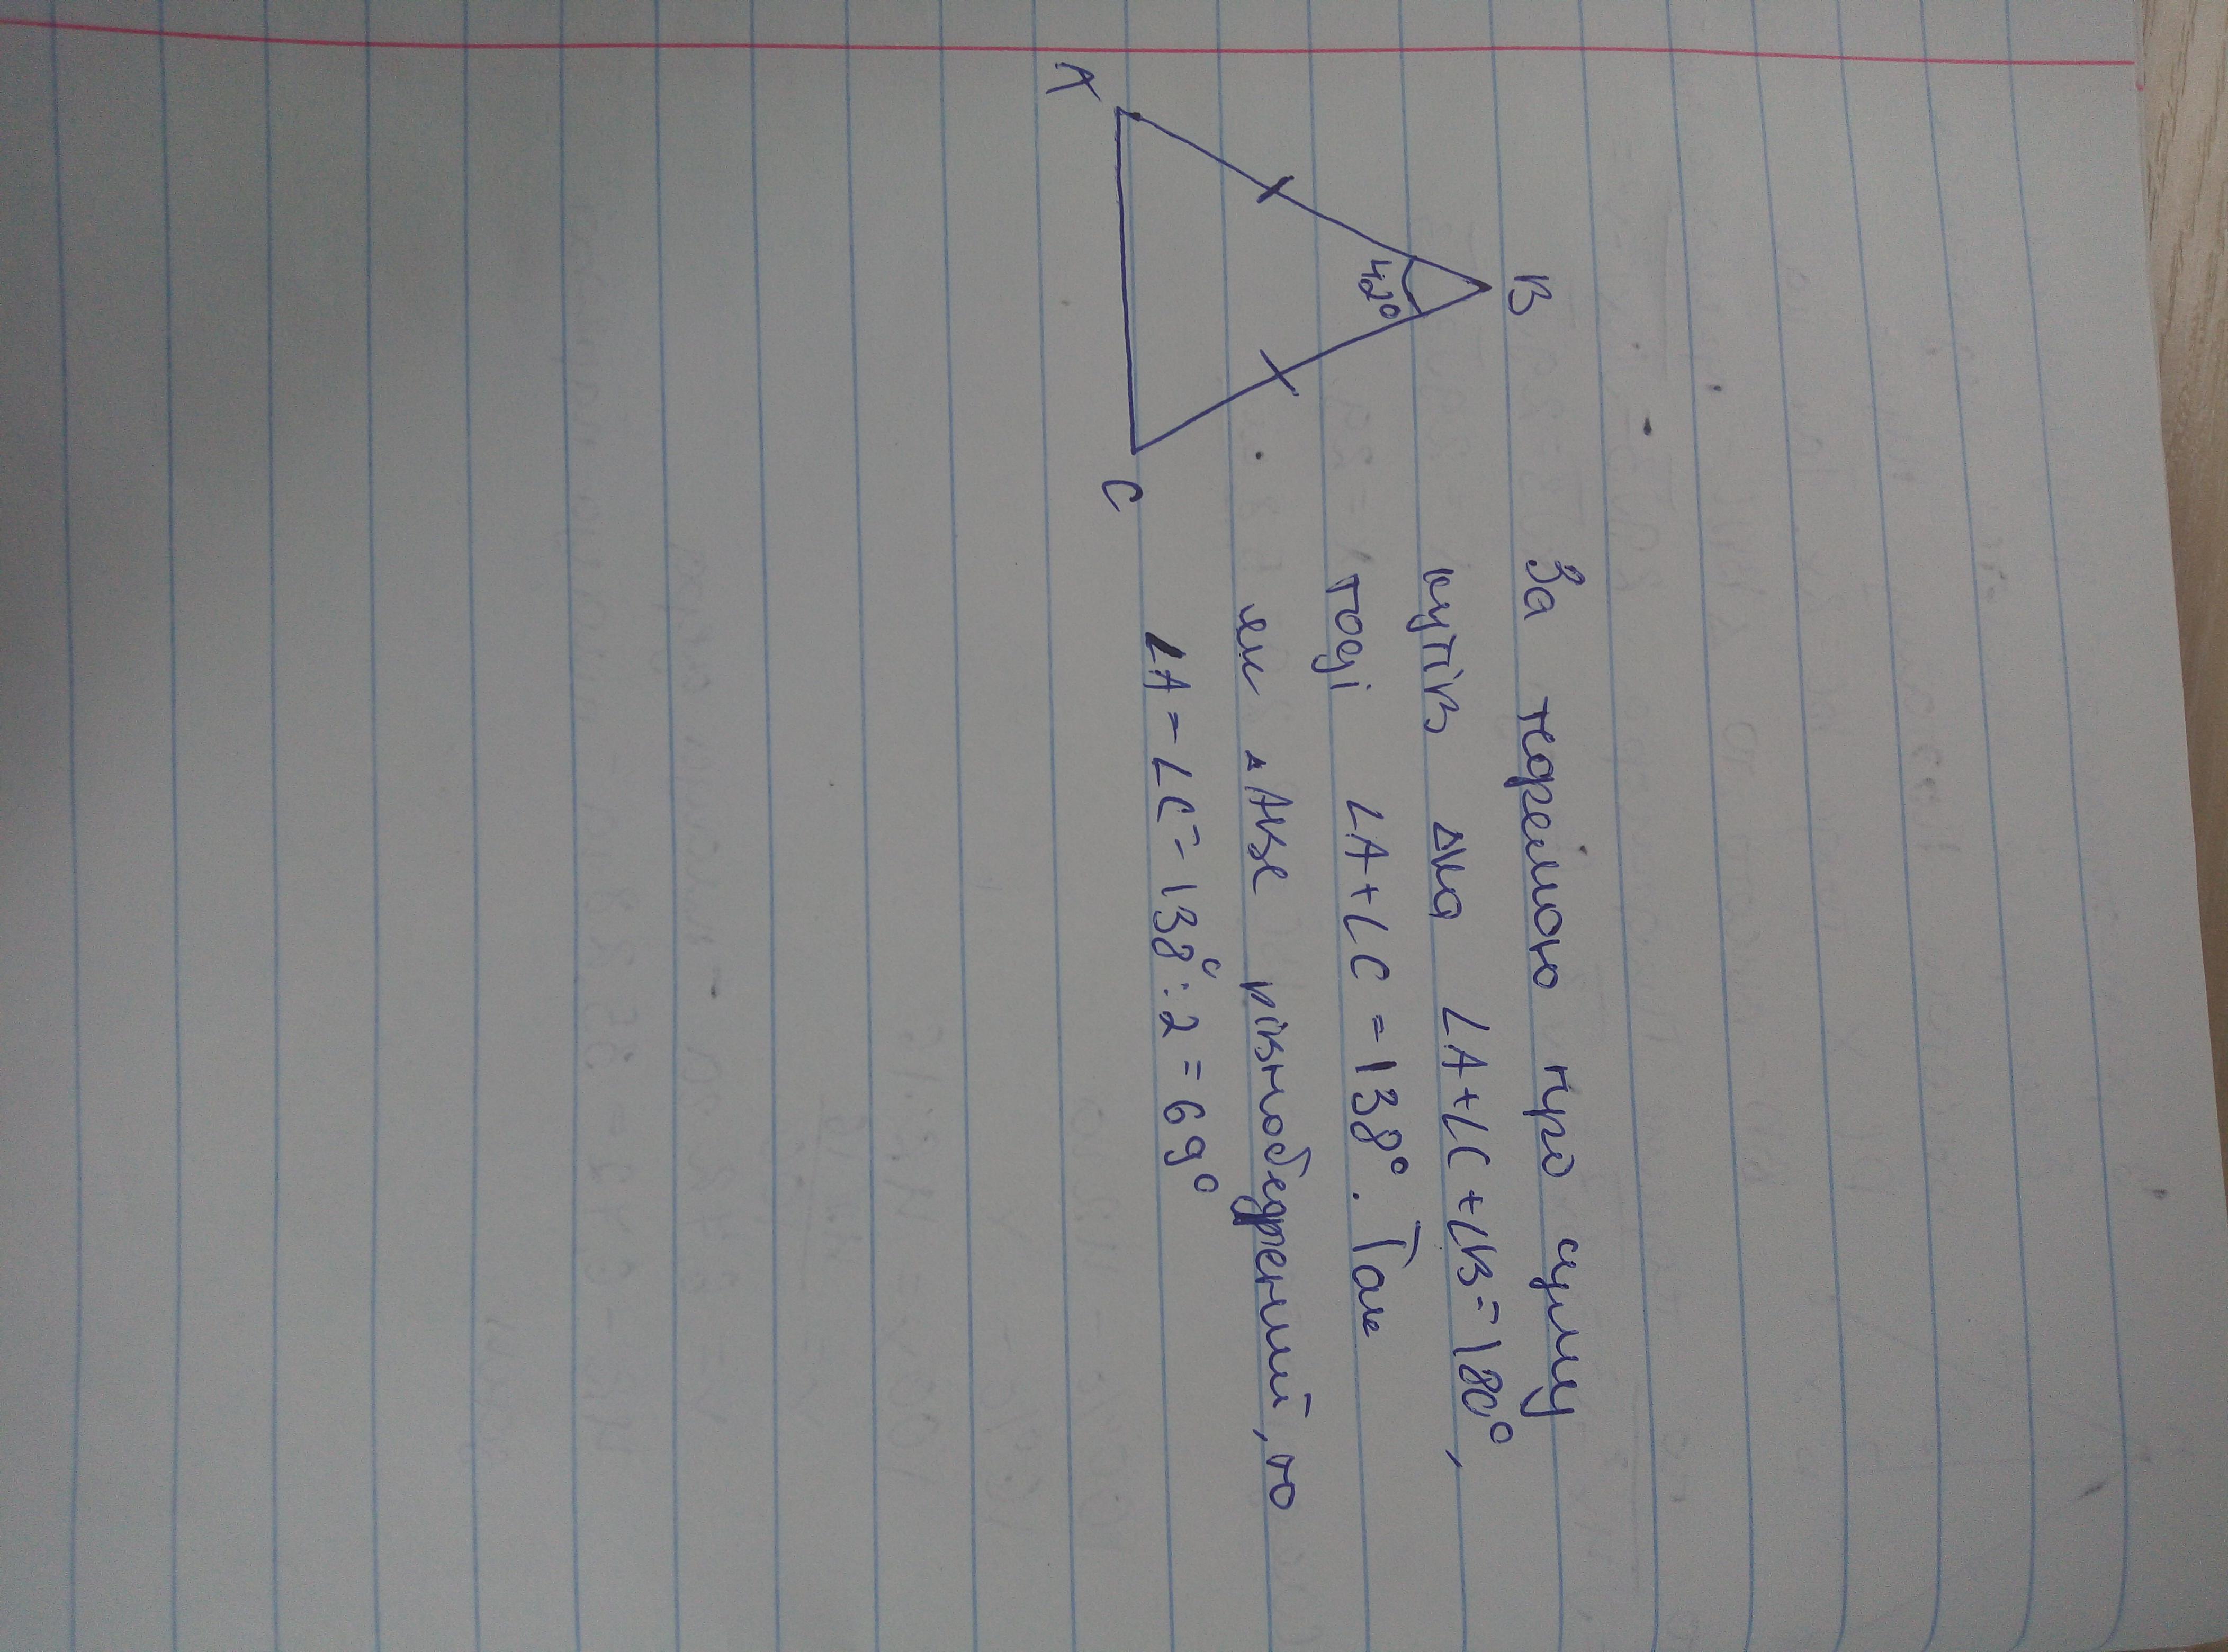 B
42°
A
C
За теоремою про суму
кутів △ка ∠A+∠C+∠B=180°,
тоді ∠A+∠C=138°. Так
як △ABC рівнобедрений, то
∠A=∠C=138°:2=69°